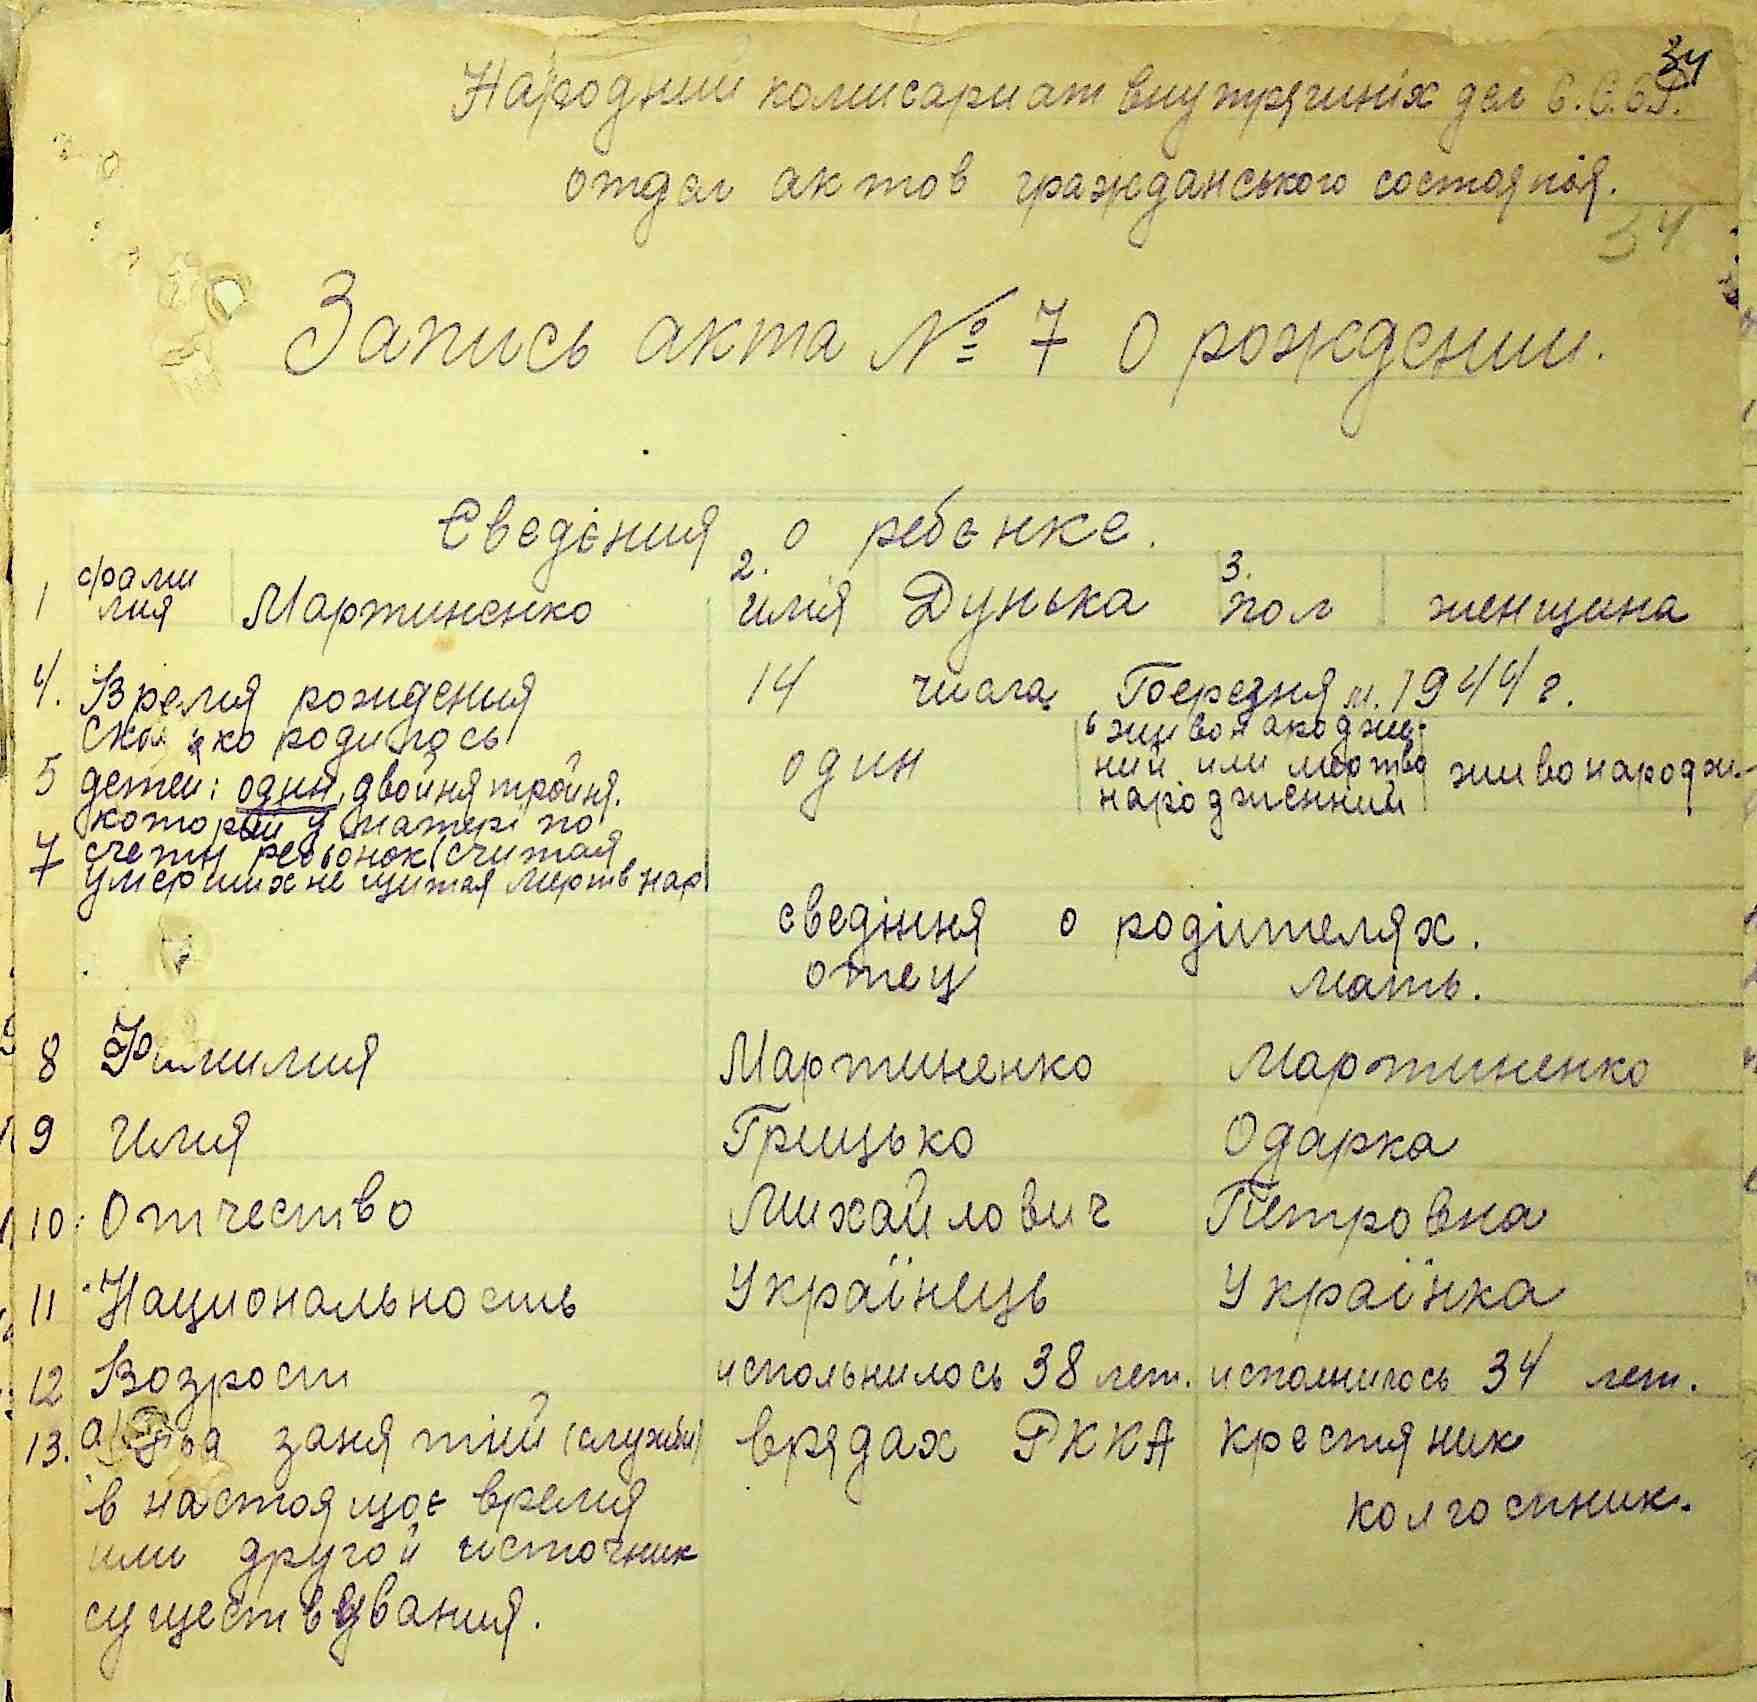 34
Народний комисариат внутрениіх дел С.С.С.Р.
отдел актов гражданського состояния.
34
Запись акта № 7 о рождении.
Сведєния о ребєнке.
1 фами лия Мартиненко 2. имія Дунька 3. пол женщина
4. Время рождения 14 числа Березня м. 1944 г.
Сколько родилось
5 детей: один, двойня тройня. один живонароджений или мертво народженний живонародж.
который у матери по
7 счету ребьонок (считая
умерших не щитая мертв нар
сведіння о родителях.
отец мать.
8 Фамилия Мартиненко Мартиненко
9 Имя Грицько Одарка
10. Отчество Михайлович Петровна
11 Национальность Українець Українка
12 Возрост испольнилось 38 лет. исполнилось 34 лет.
13. а) Род занятий (служби) в рядах РККА крестяник
в настоящоє время колгоспник.
или другой источник
существування.